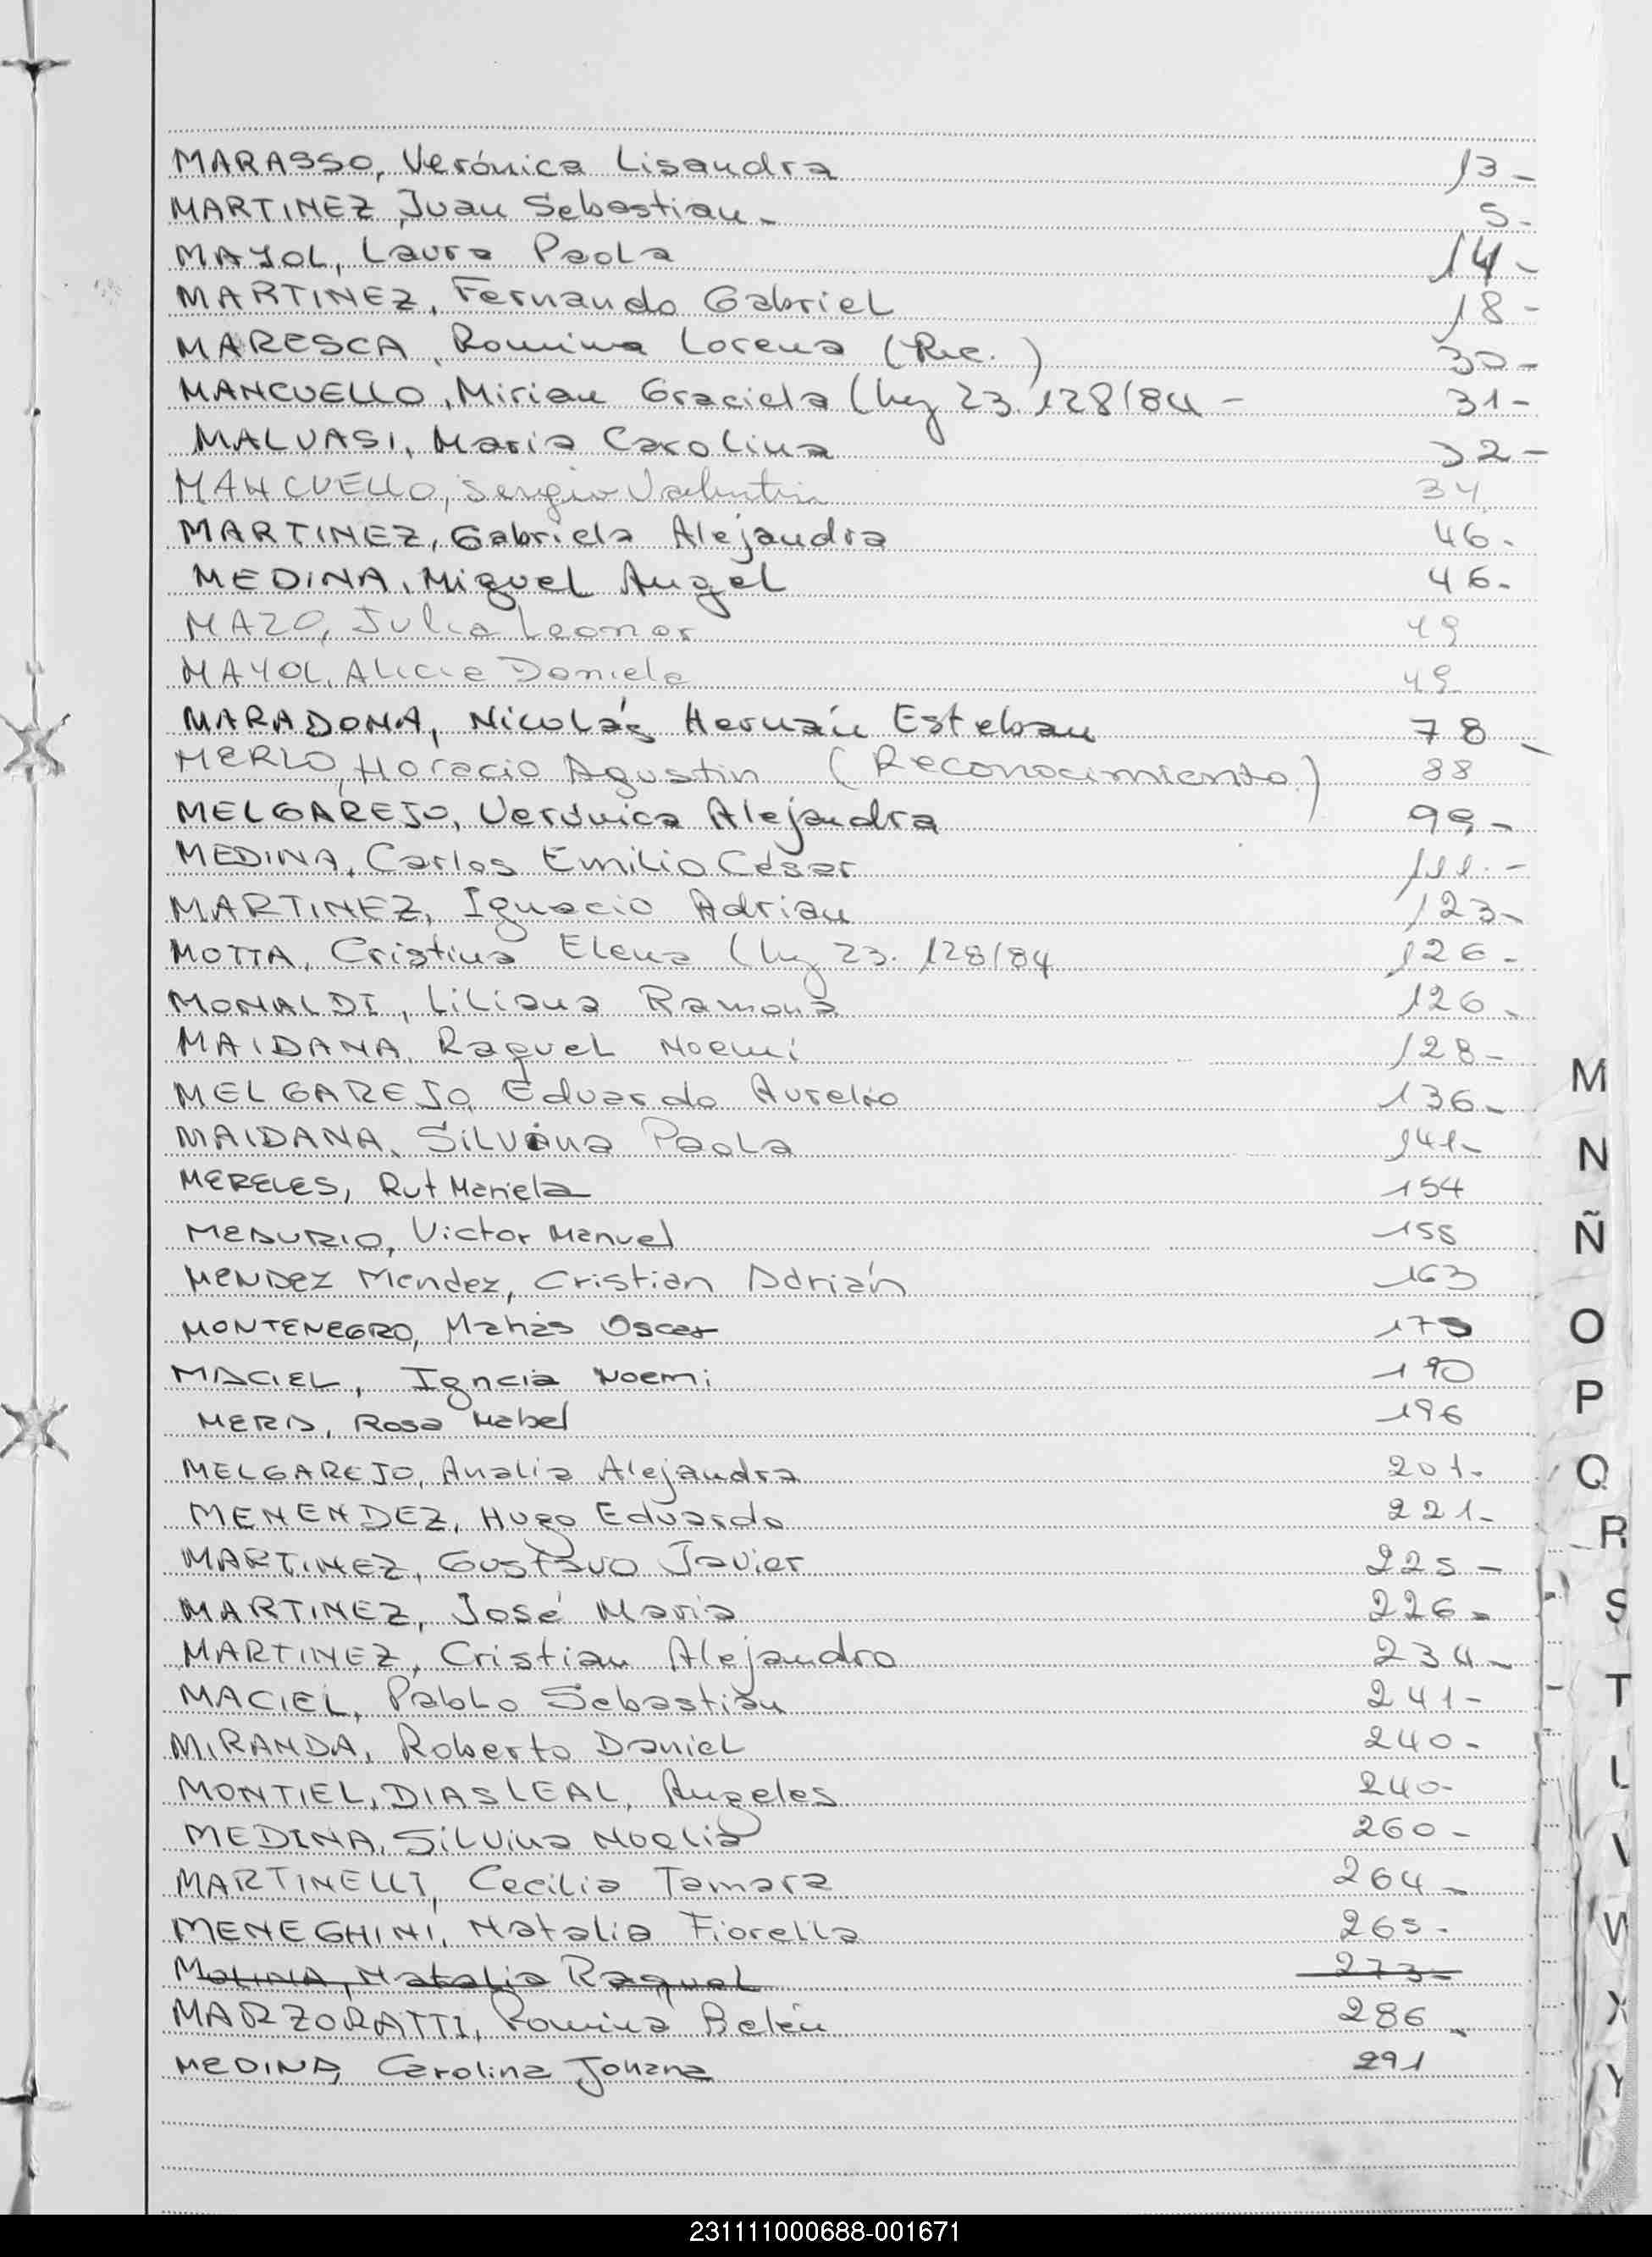 MARASSO, Verónica Lisandra 13-
MARTINEZ, Juan Sebastian- 5-
MAYOL, Laura Paola 14-
MARTINEZ, Fernando Gabriel 18-
MARESCA, Romina Lorena (Rec.) 30-
MANCUELLO, Mirian Graciela (ley 23.128/84- 31-
MALVASI, Maria Carolina 32-
MANCUELLO, Sergio Valentin 34
MARTINEZ, Gabriela Alejandra 46-
MEDINA, Miguel Angel 46-
MAZO, Julia Leonor 49
MAYOL, Alicia Daniela 49
MARADONA, Nicolás Hernán Esteban 78-
MERLO, Horacio Agustin (Reconocimiento) 88
MELGAREJO, Verónica Alejandra 99-
MEDINA, Carlos Emilio César 111.-
MARTINEZ, Ignacio Adrian 123-
MOTTA, Cristina Elena (ley 23.128/84 126-
MONALDI, Liliana Ramona 126-
MAIDANA, Raquel Noemi 128-
MELGAREJO, Eduardo Aurelio 136-
MAIDANA, Silvina Paola 141-
MERELES, Rut Mariela 154
MEDURIO, Victor Manuel 155
MENDEZ Mendez, Cristian Adrián 163
MONTENEGRO, Matias Oscar 175
MACIEL, Igncia Noemi 190
MERA, Rosa Mabel 196
MELGAREJO, Analia Alejandra 201-
MENENDEZ, Hugo Eduardo 221-
MARTINEZ, Gustavo Javier 225-
MARTINEZ, José Maria 226-
MARTINEZ, Cristian Alejandro 234-
MACIEL, Pablo Sebastián 241-
MIRANDA, Roberto Daniel 240-
MONTIEL, DIAS LEAL, Angeles 240-
MEDINA, Silvina Noelia 260-
MARTINELLI, Cecilia Tamara 264-
MENEGHINI, Natalia Fiorella 265-
MOLINA, Natalia Raquel 273-
MARZORATTI, Romina Belén 286-
MEDINA, Carolina Johana 291
M
N
Ñ
O
P
Q
R
S
T
U
V
W
X
Y
231111000688-001671